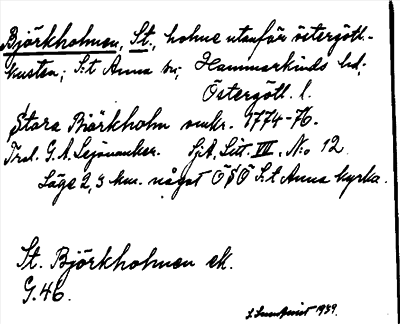 Björkholmen, St., holme utanför östergötl-
kusten; S:t Anna sn; Hammarkinds hd,
Östergötl. l.
Stora Björkholm omkr. 1774-76.
Trol. G. A. Lejonancker. SjA, Litt. VII, No 12.
Läge 2,3 km. något ÖSÖ S:t Anna kyrka.
St. Björkholmen ek.
G.46.
1939.